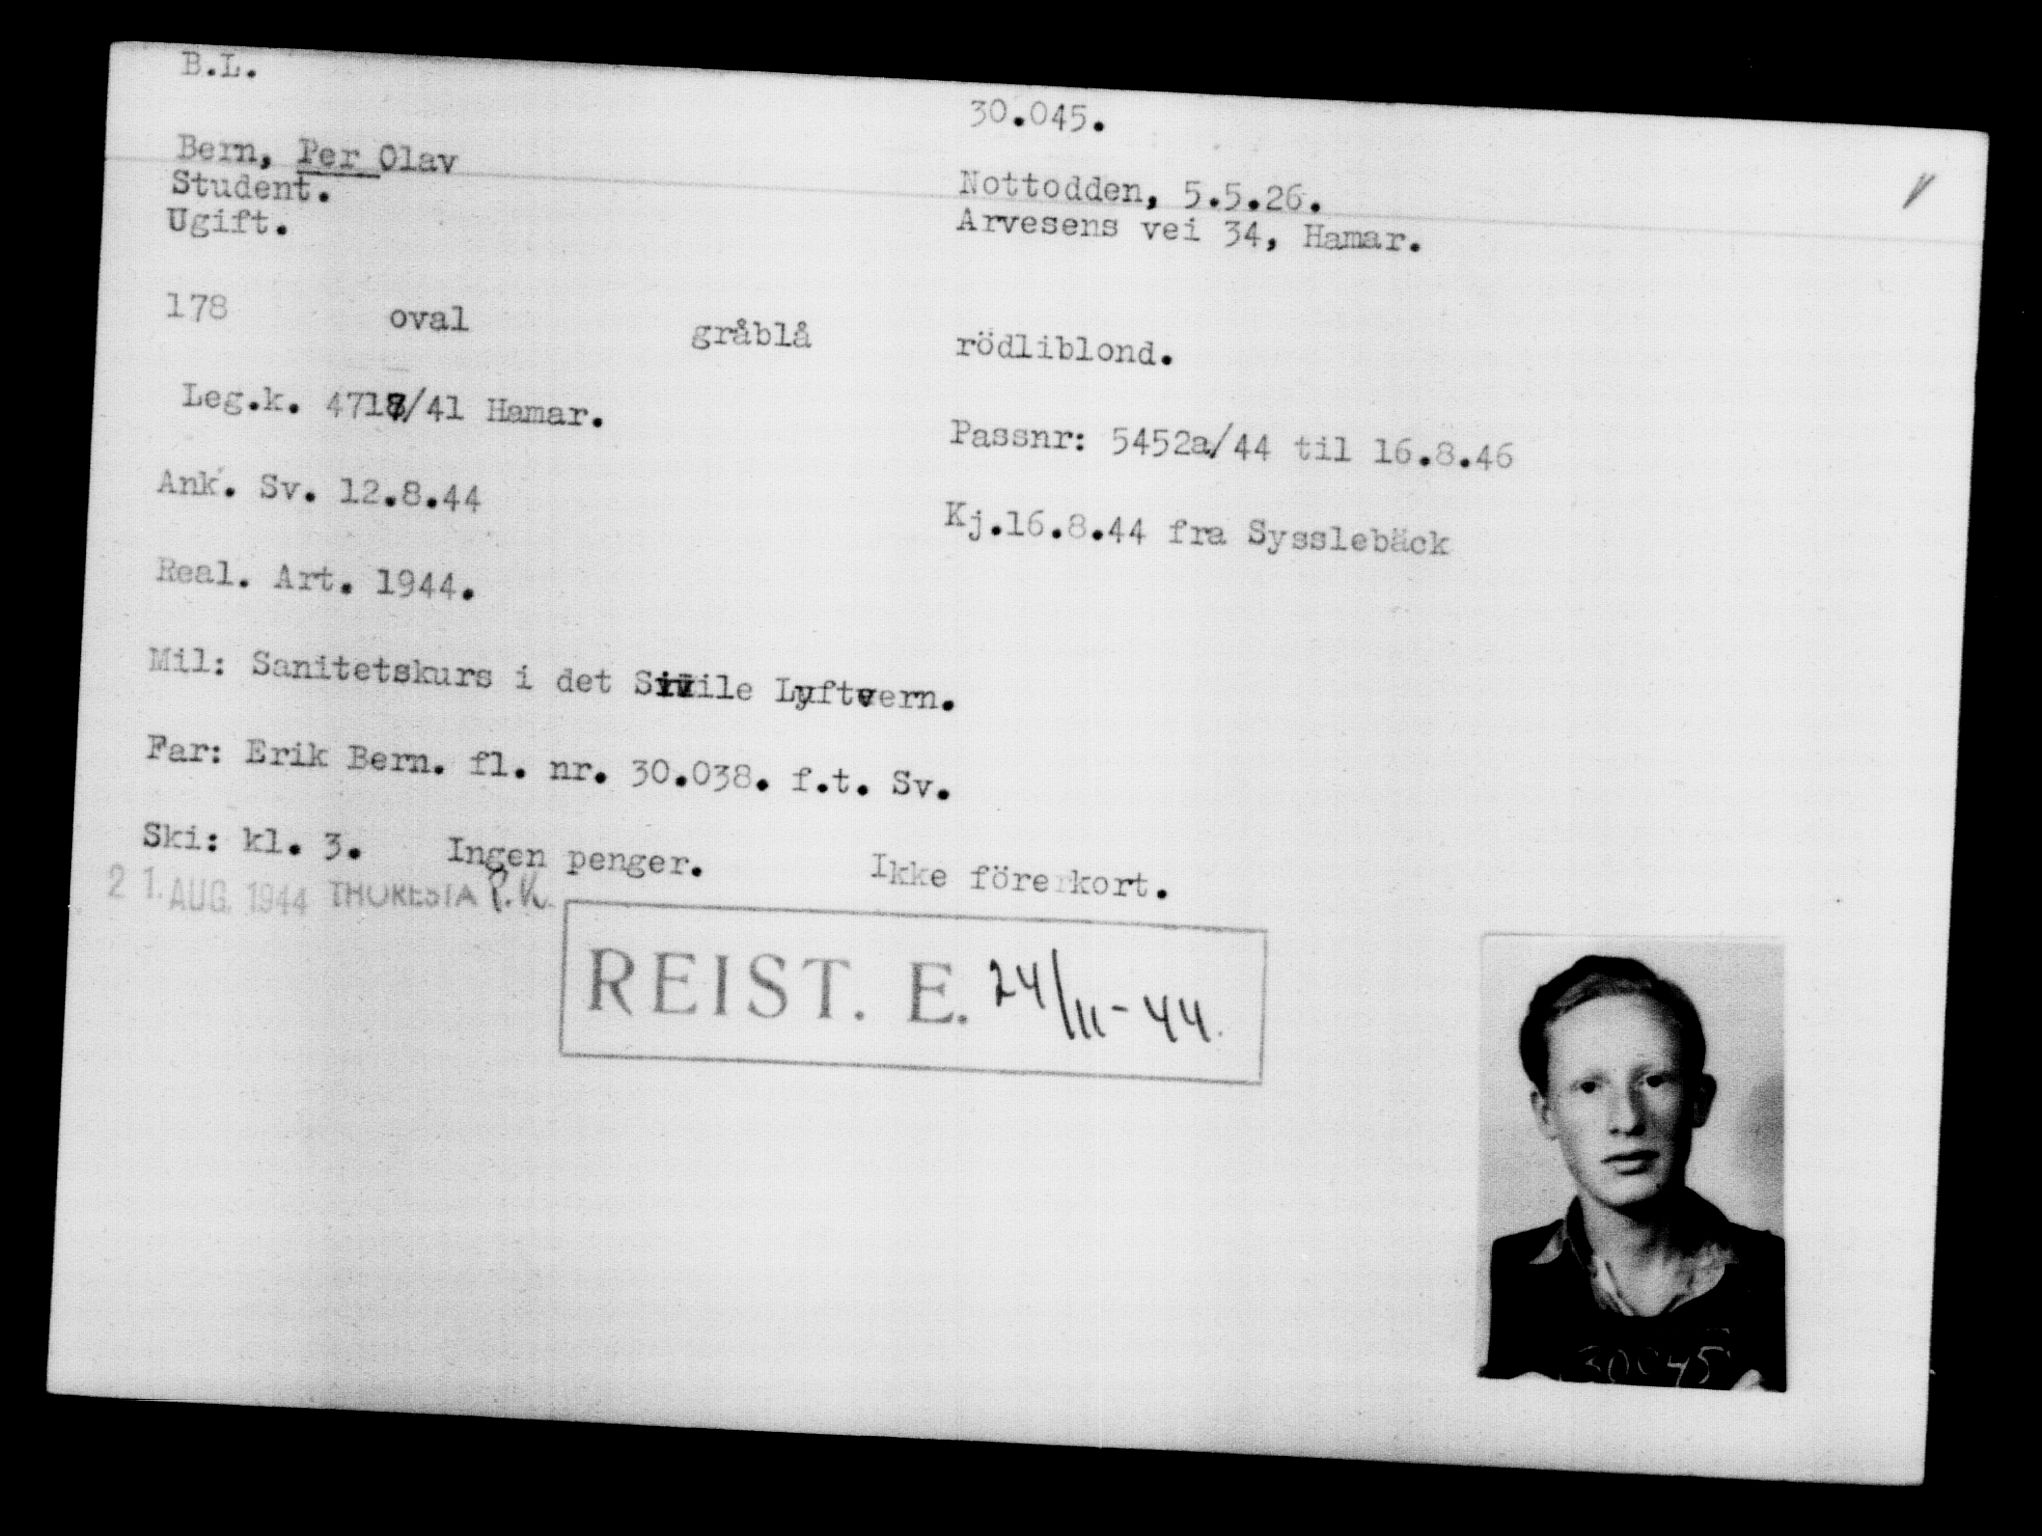 B.L.
30.045.
Bern, Per Olav
Student.
Ugift.
Nottodden, 5.5.26.
Arvesens vei 34, Hamar.
178 oval gråblå rödliblond.
Leg.k. 4718/41 Hamar.
Passnr: 5452a/44 til 16.8.46
Ank. Sv. 12.8.44
Kj.16.8.44 fra Sysslebäck
Real. Art. 1944.
Mil: Sanitetskurs i det Sivile Luftvern.
Far: Erik Bern. fl. nr. 30.038. f.t. Sv.
Ski: kl. 3. Ingen penger. Ikke förerkort.
21. AUG. 1944 THORESTA P.K.
REIST. E. 24/11-44.
30045